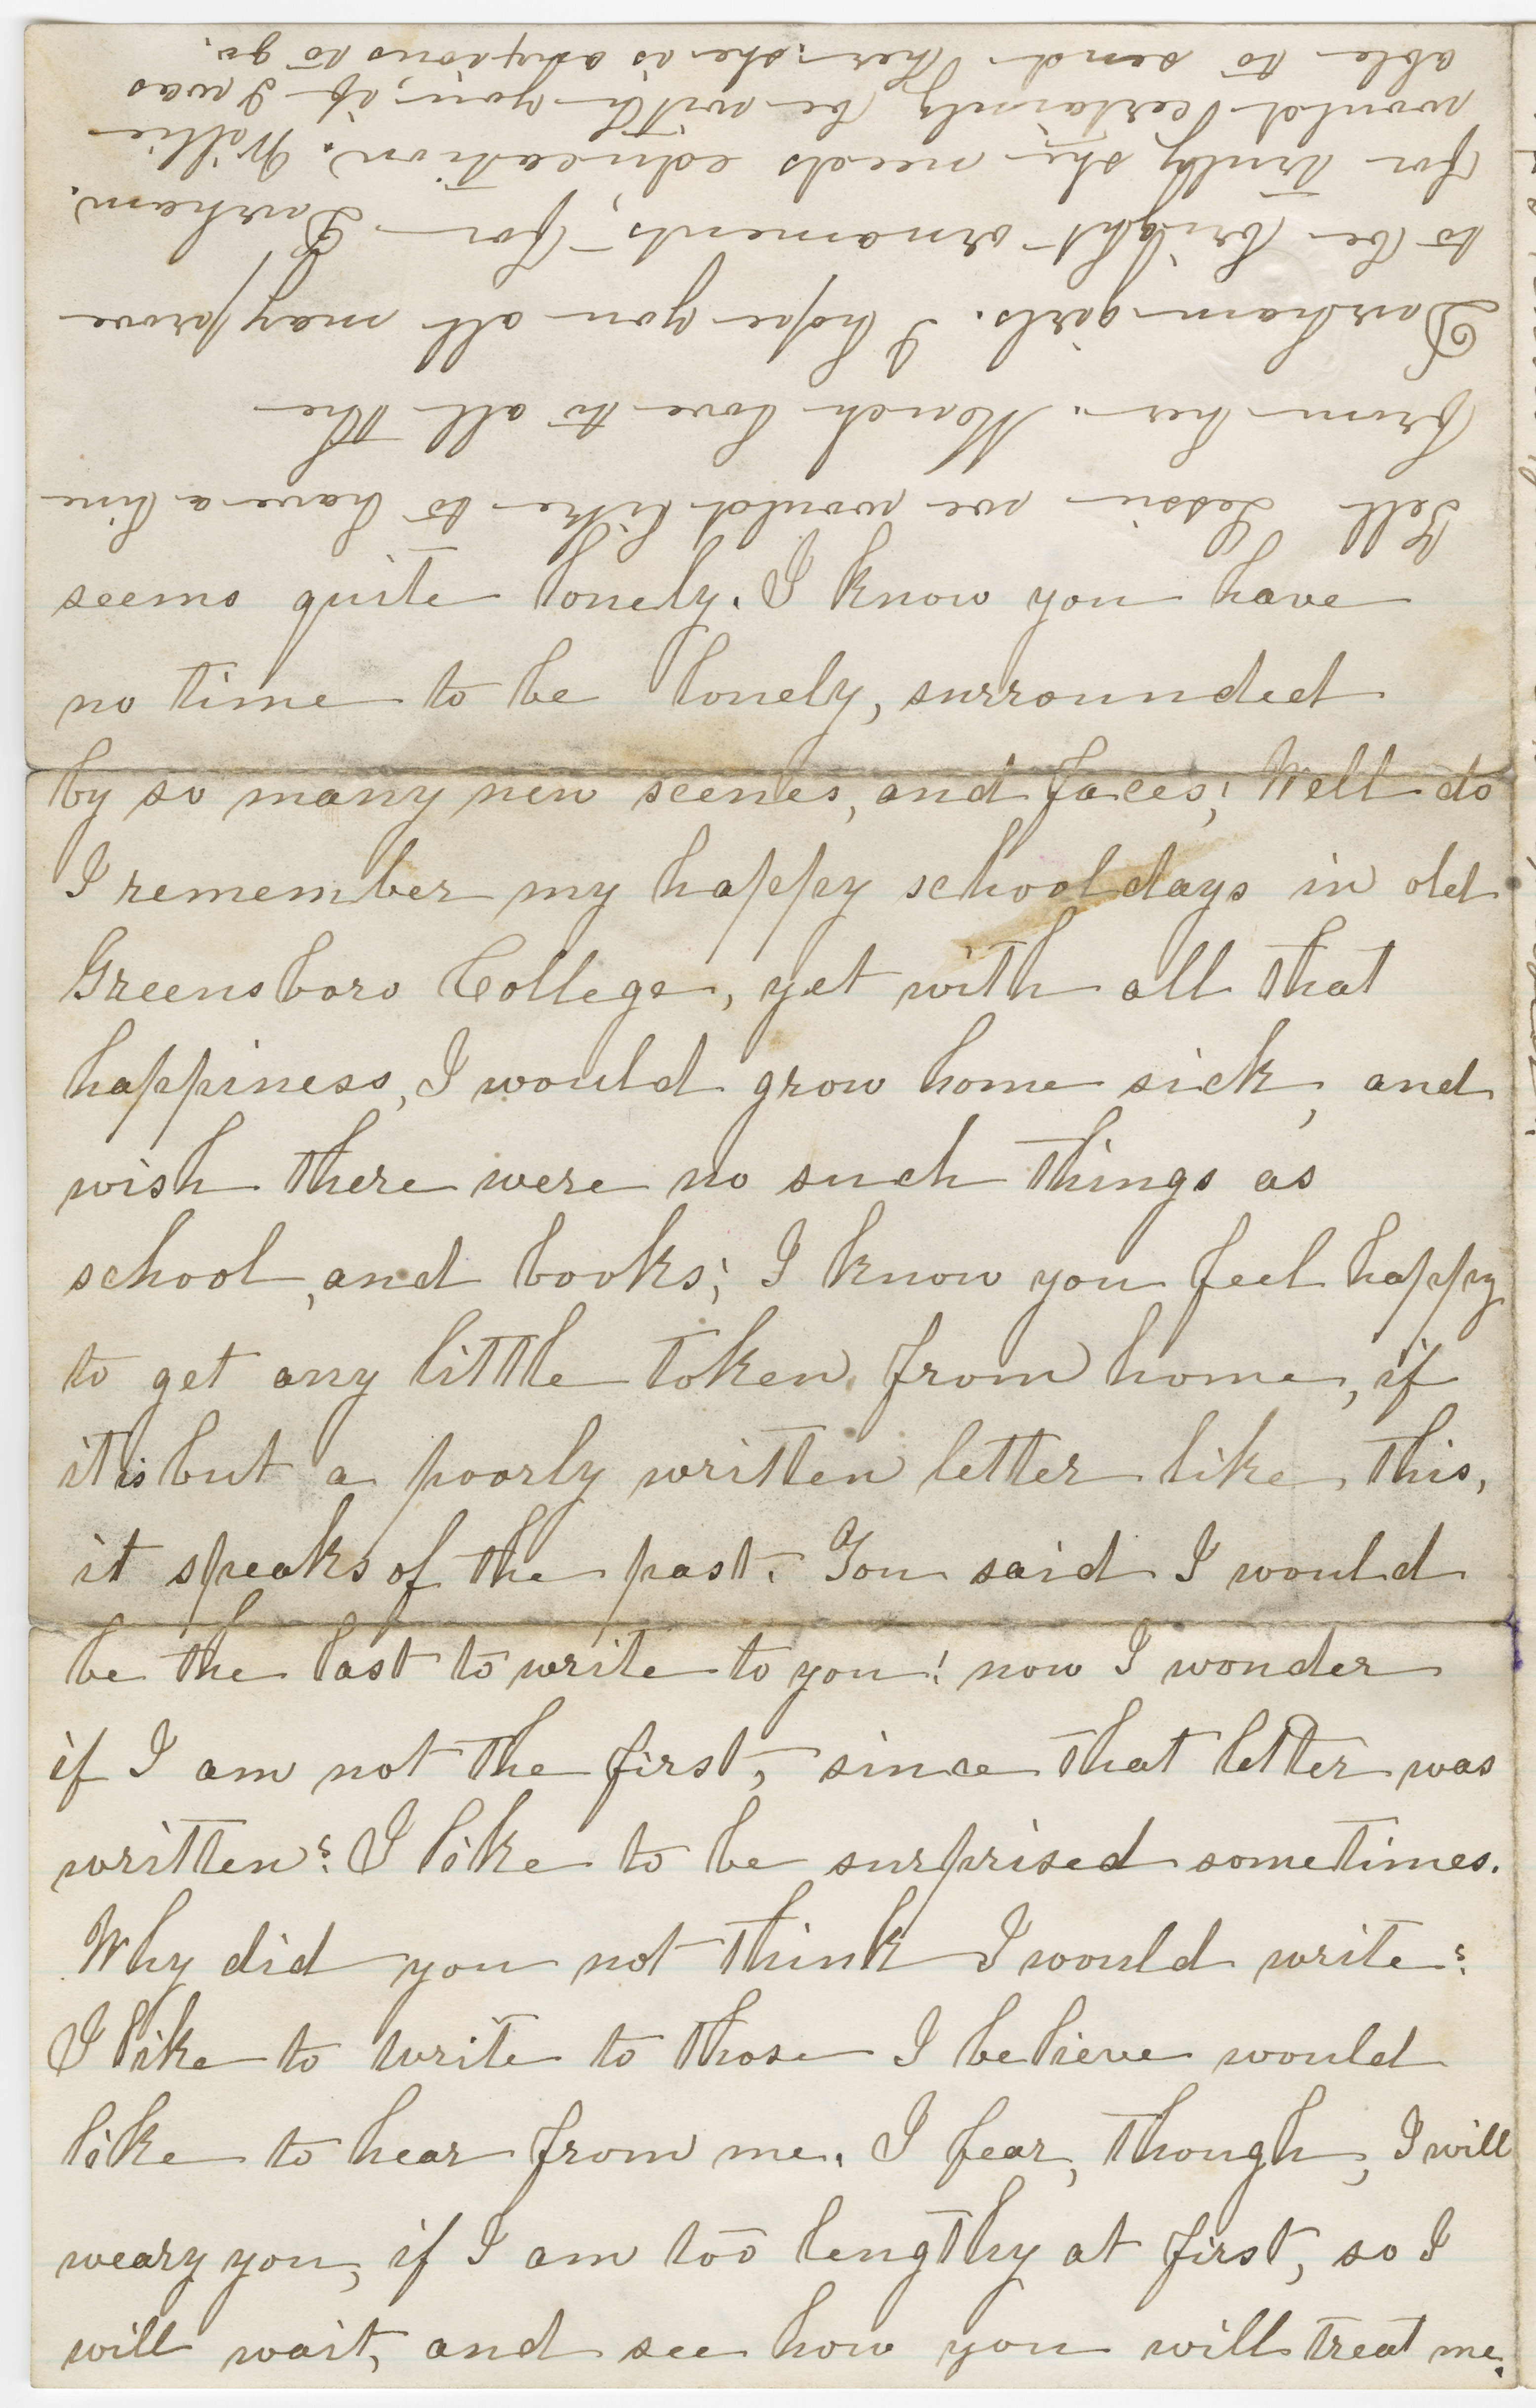 seems quite lonely. I know you have
no time to be lonely, surrounded
by so many new scenes, and faces; Well do
I remember my happy school days in old
Greensboro College, yet with all that
happiness, I would grow home sick, and
wish there were no such things as
school, and books; I know you feel happy
to get any little token from home, if
it is but a poorly written letter like this,
it speaks of the past. You said I would
be the last to write to you! now I wonder
if I am not the first, since that letter was
written? I like to be surprised sometimes.
Why did you not think I would write?
I like to write to those I believe would
like to hear from me. I fear, though, I will
weary you, if I am too lengthy at first, so I
will wait, and see how you will treat me.
Tell Lessie we would like to have a line
from her. Much love to all the
Durham girls. I hope you all may prove
to be bright ornaments, for Durham.
for truly she needs education. Mattie
would certainly be with you, if I was
able to send her: she is anxious to go.